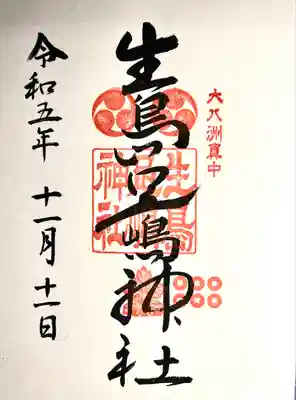 大八洲真中
生島足嶋神社
生島
足嶋
神社
令和五年 十一月十一日